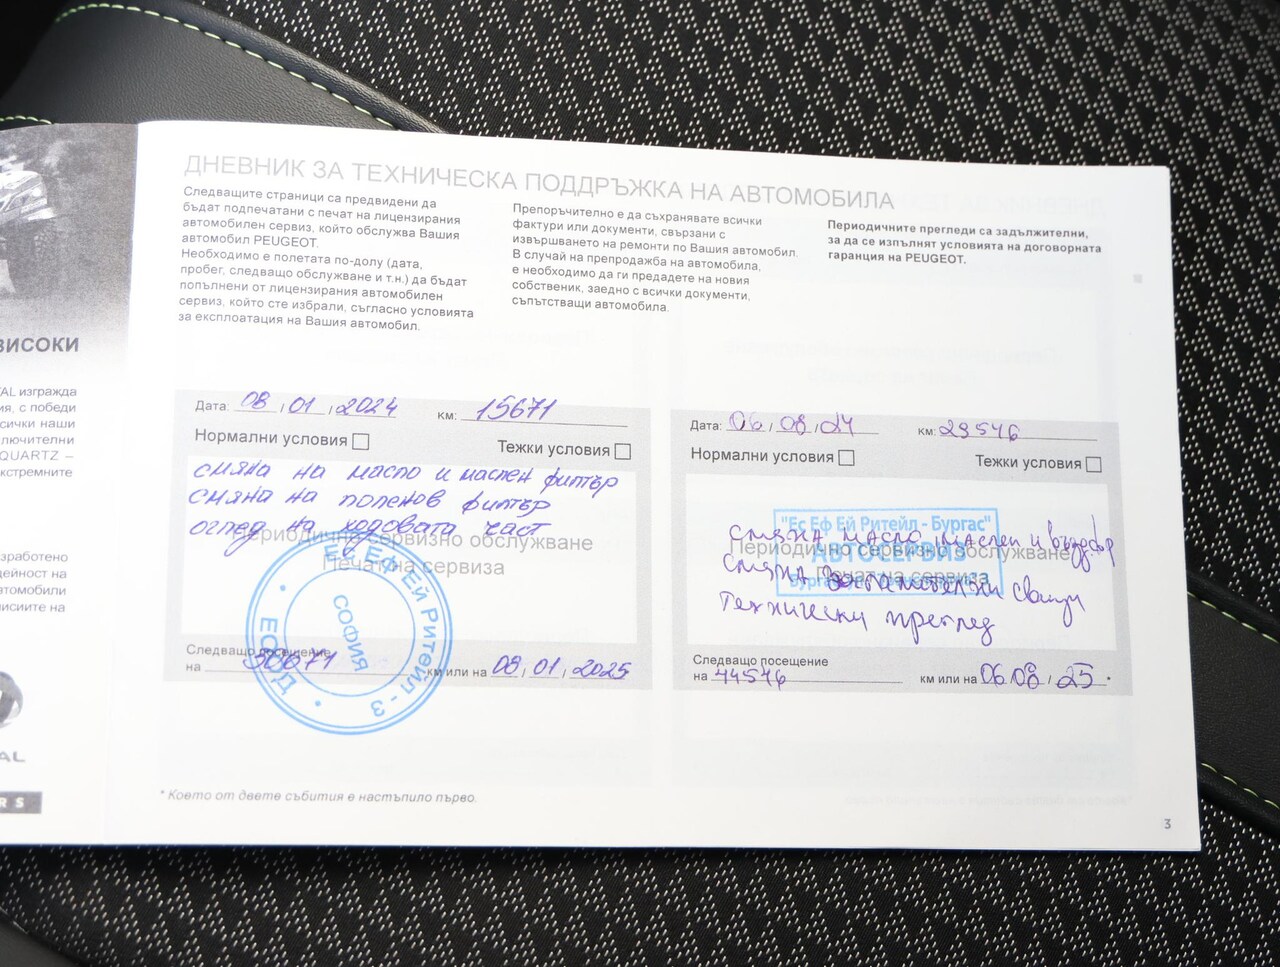 ВИСОКИ
AL изгражда
ия, с победи
сички наши
лючителни
QUARTZ –
екстремните
зработено
дейност на
автомобили
мисиите на
AL
RS
ДНЕВНИК ЗА ТЕХНИЧЕСКА ПОДДРЪЖКА НА АВТОМОБИЛА
Следващите страници са предвидени да
бъдат подпечатани с печат на лицензирания
автомобилен сервиз, който обслужва Вашия
автомобил PEUGEOT.
Необходимо е полетата по-долу (дата,
пробег, следващо обслужване и т.н.) да бъдат
попълнени от лицензирания автомобилен
сервиз, който сте избрали, съгласно условията
за експлоатация на Вашия автомобил.
Препоръчително е да съхранявате всички
фактури или документи, свързани с
извършването на ремонти по Вашия автомобил.
В случай на препродажба на автомобила,
е необходимо да ги предадете на новия
собственик, заедно с всички документи,
съпътстващи автомобила.
Периодичните прегледи са задължителни,
за да се изпълнят условията на договорната
гаранция на PEUGEOT.
Дата: 08 / 01 / 2024 км: 15671
Нормални условия
Тежки условия
смяна на масло и маслен филтър
смяна на поленов филтър
оглед на ходовата част
Периодично сервизно обслужване
Печат на сервиза
ЕС ЕФ ЕЙ Ритейл - 3
ЕООД
СОФИЯ
Следващо посещение
на 30671 км или на 08 / 01 / 2025
Дата: 06 / 08 / 24 км: 29546
Нормални условия
Тежки условия
"Ес Еф Ей Ритейл - Бургас"
АВТОСЕРВИЗ
Смяна масло, маслен и възд. ф-р
Периодично сервизно обслужване
Смяна запалителни свещи
Печат на сервиза
Технически преглед
Следващо посещение
на 44546 км или на 06 08 / 25.
* Което от двете събития е настъпило първо.
3